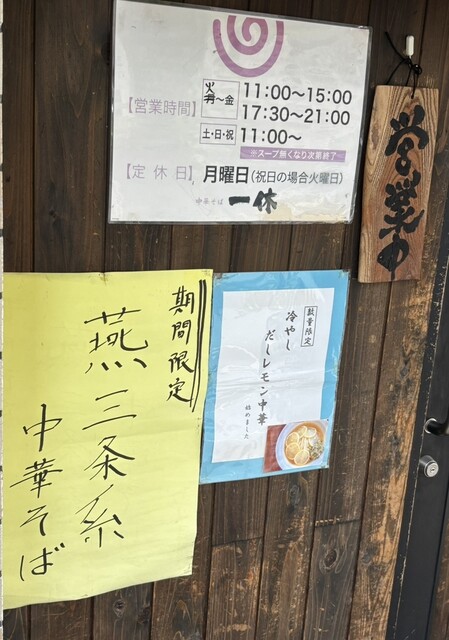 【営業時間】
火～金
11:00～15:00
17:30～21:00
土・日・祝
11:00～
※スープ無くなり次第終了
【定休日】月曜日(祝日の場合火曜日)
中華そば 一休
営業中
期間限定
燕三条系
中華そば
数量限定
冷やし
だしレモン中華
始めました